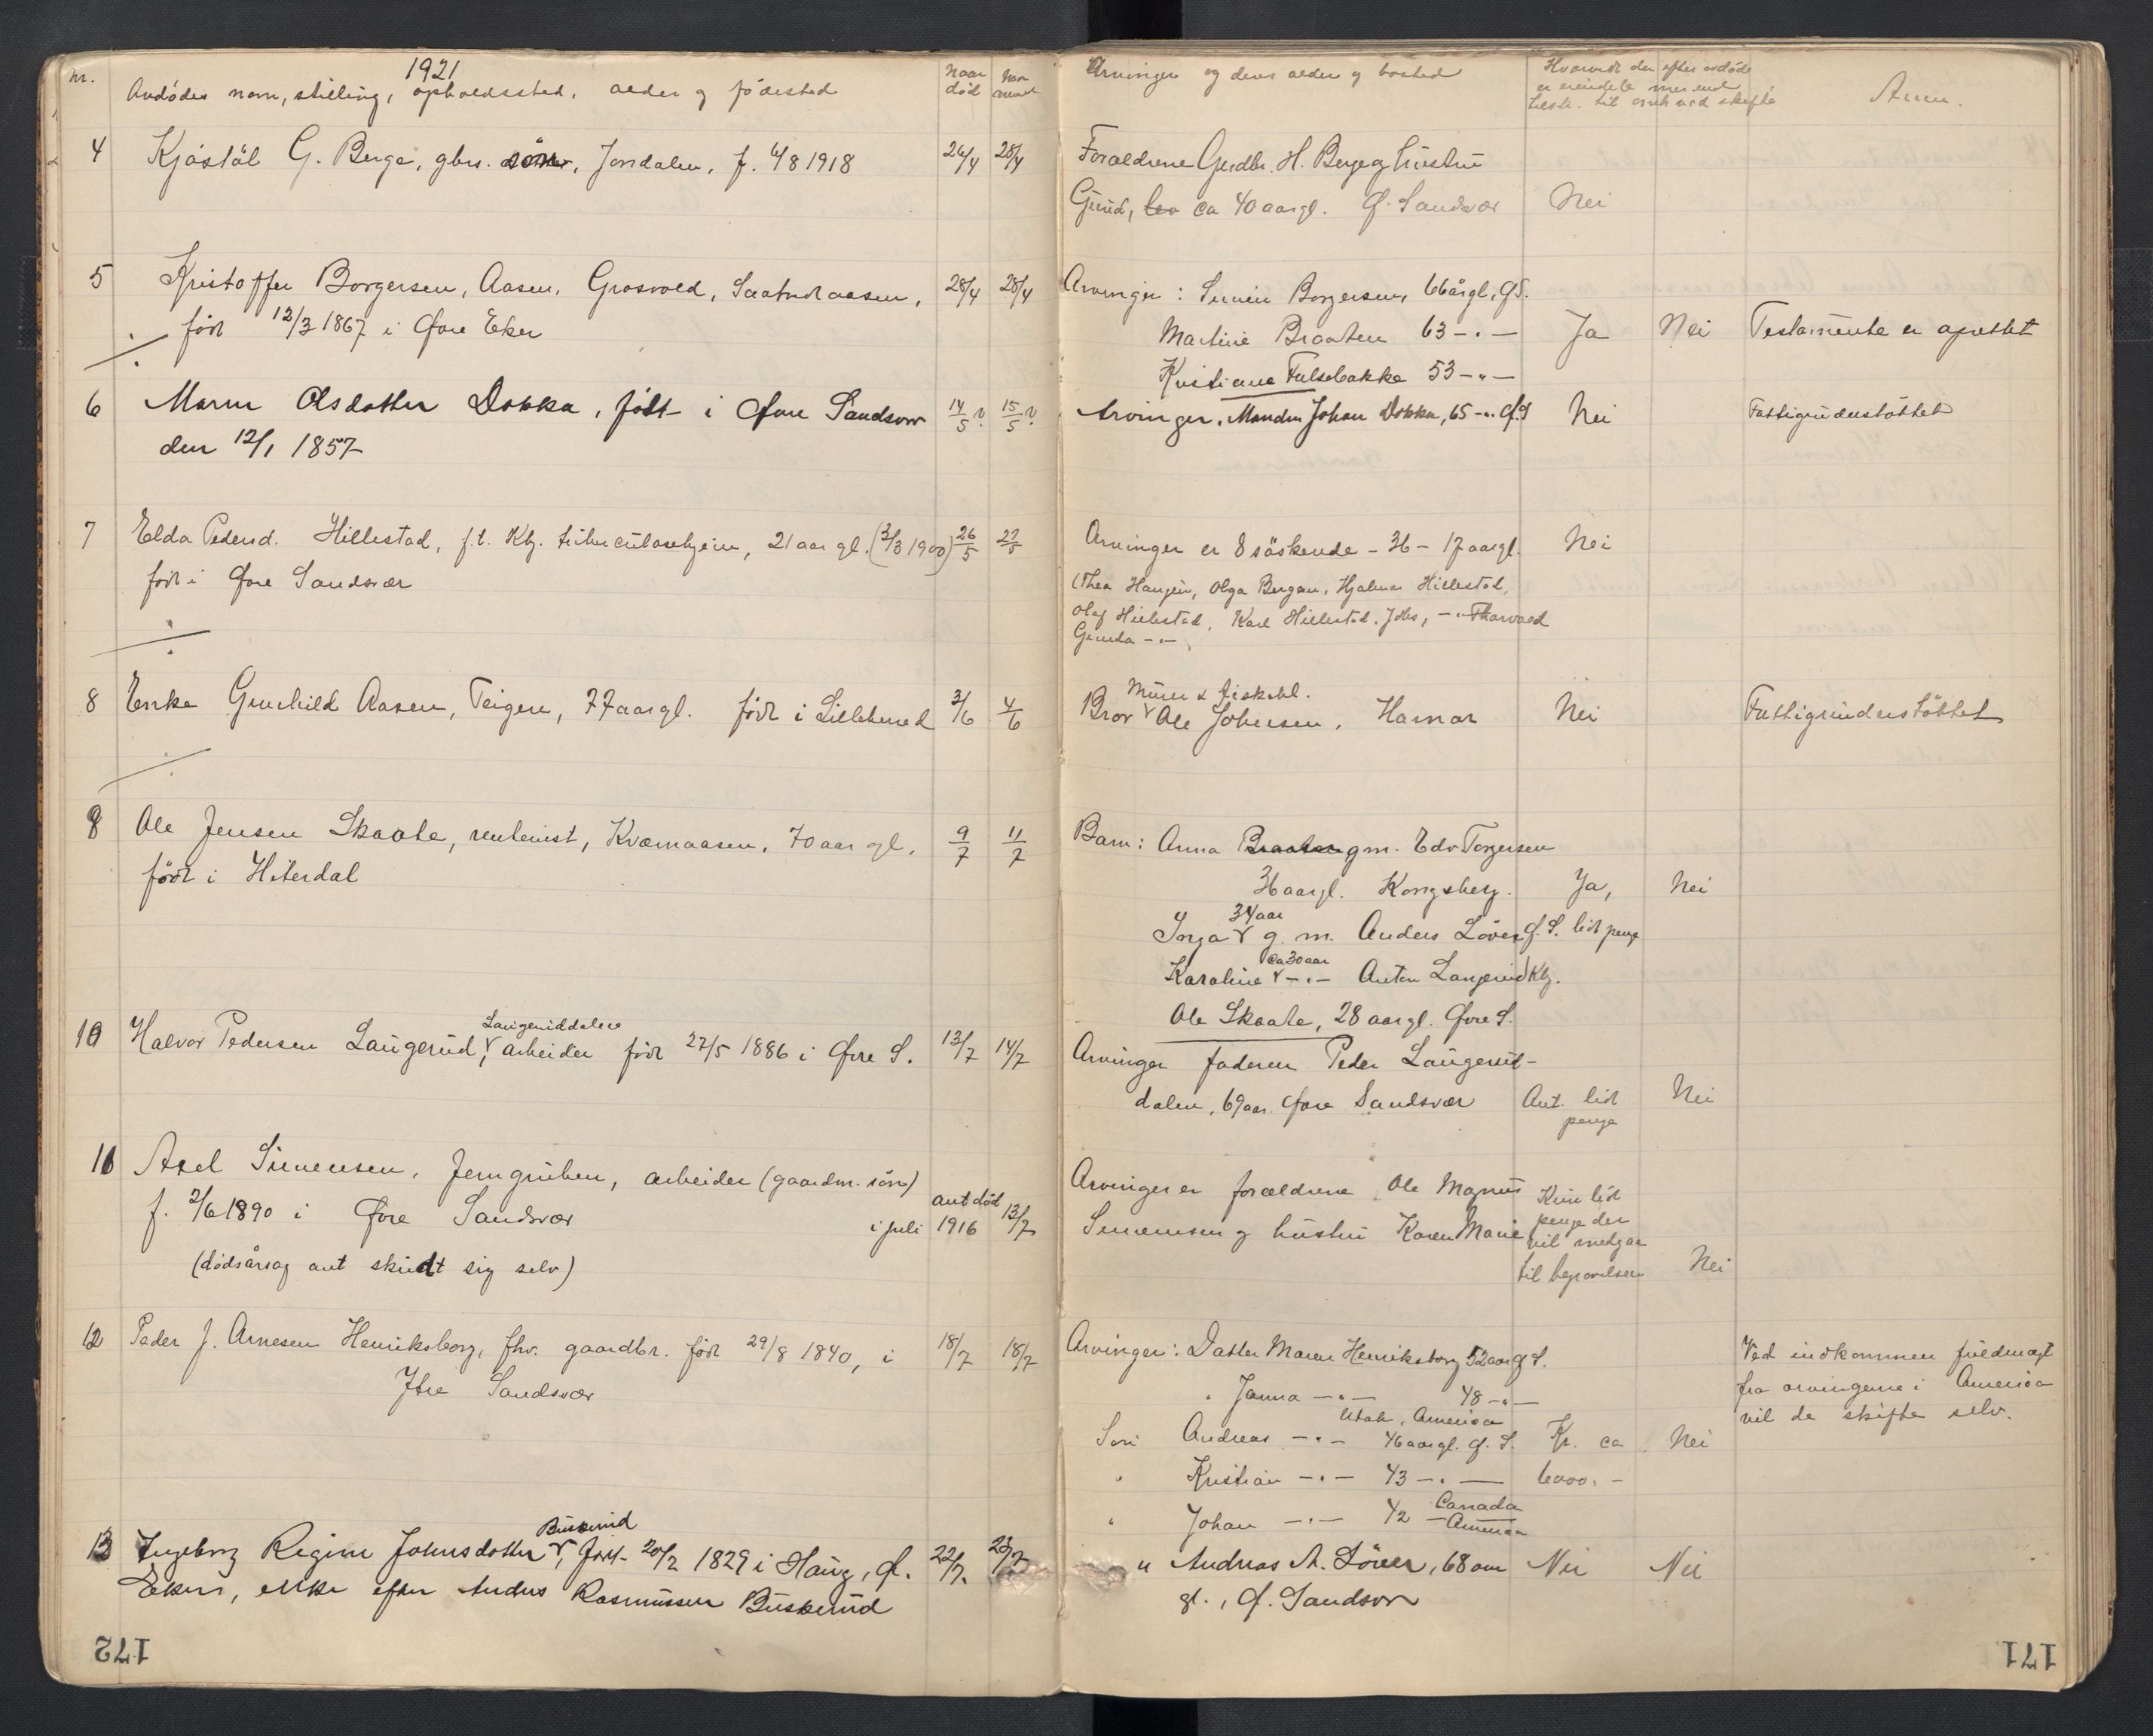 1921
nr. Avdödes navn, stilling, opholdssted, alder og födested
Naar död
Naar anmeldt
Arvinger og deres alder og bosted
Hvorvidt der efter avdöde
er eiendele mer end
til
Anm.
4 Kjöstöl G. Berge, gbrs. sön, Jondalen, f. 4/8 1918 26/4 28/4
Foraeldrene Gardbr. H. Berge og hustru
Gund, ca 40 aar gl. Ö. Sandsvær Nei
5 Kristoffer Borgersen, Aasen, Grosvold, 28/4 28/4
född 12/3 1867 i Övre Eker
Arvinger: Borgersen, 66 år gl, ÖS.
Martine Braaten 63 -"- Ja Nei Testamente er oprettet
Kristiane Fulsebakke 53 -"-
6 Maren Olsdatter Dokka, född i Övre Sandsvær 14/5 15/5
den 12/1 1857
Arvinger. Manden Johan Dokka, 65 -"- Ö.S Nei Fattigunderstöttet
7 Elda Pedersd. Hillestad, f.t. Kbg. tuberculosehjem, 21 aar gl. (3/3 1900) 26/5 27/5
född i Övre Sandsvær
Arvinger er 8 söskende - 36 - 17 aar gl. Nei
(Thea Haugen, Olga Bergan, Hjalmar Hillestad,
Olaf Hillestad, Karl Hillestad, -"- Thorvald
Gunda -"-
8 Enke Gunhild Aasen, Teigen, 77 aar gl. född i Lillehmed 3/6 4/6
Murer &
Bror Ole Johnsen, Hamar Nei Fattigunderstöttet
9 Ole Jensen Skaate, rentenist, Kvernaasen, 70 aar gl, 9/7 11/7
född i Hiterdal
Barn: Anna Braaten gm. Edv Torgersen
36 aar gl. Kongsberg. Ja, Nei
34 aar
Inga g. m. Anders Löver Ö. S. lidt penge
ca 30 aar
Karoline -"- Anton Langerud Kbg.
Ole Skaate, 28 aar gl. Övre S.
10 Halvor Pedersen Langerud, Langeruddalen arbeider född 27/5 1886 i Övre S. 13/7 14/7
Arvinger faderen Peder Langerud-
dalen, 69 aar. Övre Sandsvær Ant. lidt Nei
penge
11 Axel Simensen, Jerngruben, arbeider (gaardm. sön)
f. 2/6 1890 i Övre Sandsvær ant död
i juli 1916 13/7
(dödsårsag ant skudt sig selv)
Arvinger er foraeldrene Ole Magnus Kun lidt
Simensen og hustru Karen Marie penge der
vil medgaa
til begravelsen Nei
12 Peder J. Arnesen Henriksborg, fhv. gaardbr. född 29/8 1840, i 18/7 18/7
Ytre Sandsvær
Arvinger: Datter Maren Henriksborg 52 aar Ö S.
" Janna -"- 48 -"-
Utah, America
Sön Andreas -"- 46 aar gl. Ö. S. Kr. ca Nei
" Kristian -"- 43 -"- 6000.-
" Johan -"- 42 Canada
America
Ved indkommen fuldmagt
fra arvingerne i America
vil de skifte selv.
13 Ingeborg Regine Johnsdatter Buskerud, född 20/2 1829 i Haug, Ö. 22/7. 23/7
Eker, enke efter Anders Rasmussen Buskerud
" Andreas A. Löver, 68 aar Nei Nei
gl., Ö. Sandsvær
172
171